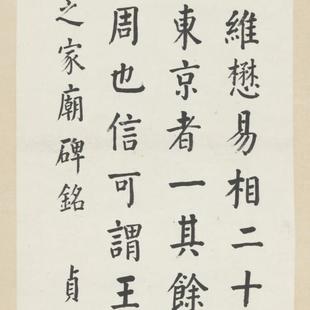 維懋易相二十
東京者一其餘
周也信可謂王
之家廟碑銘 貞